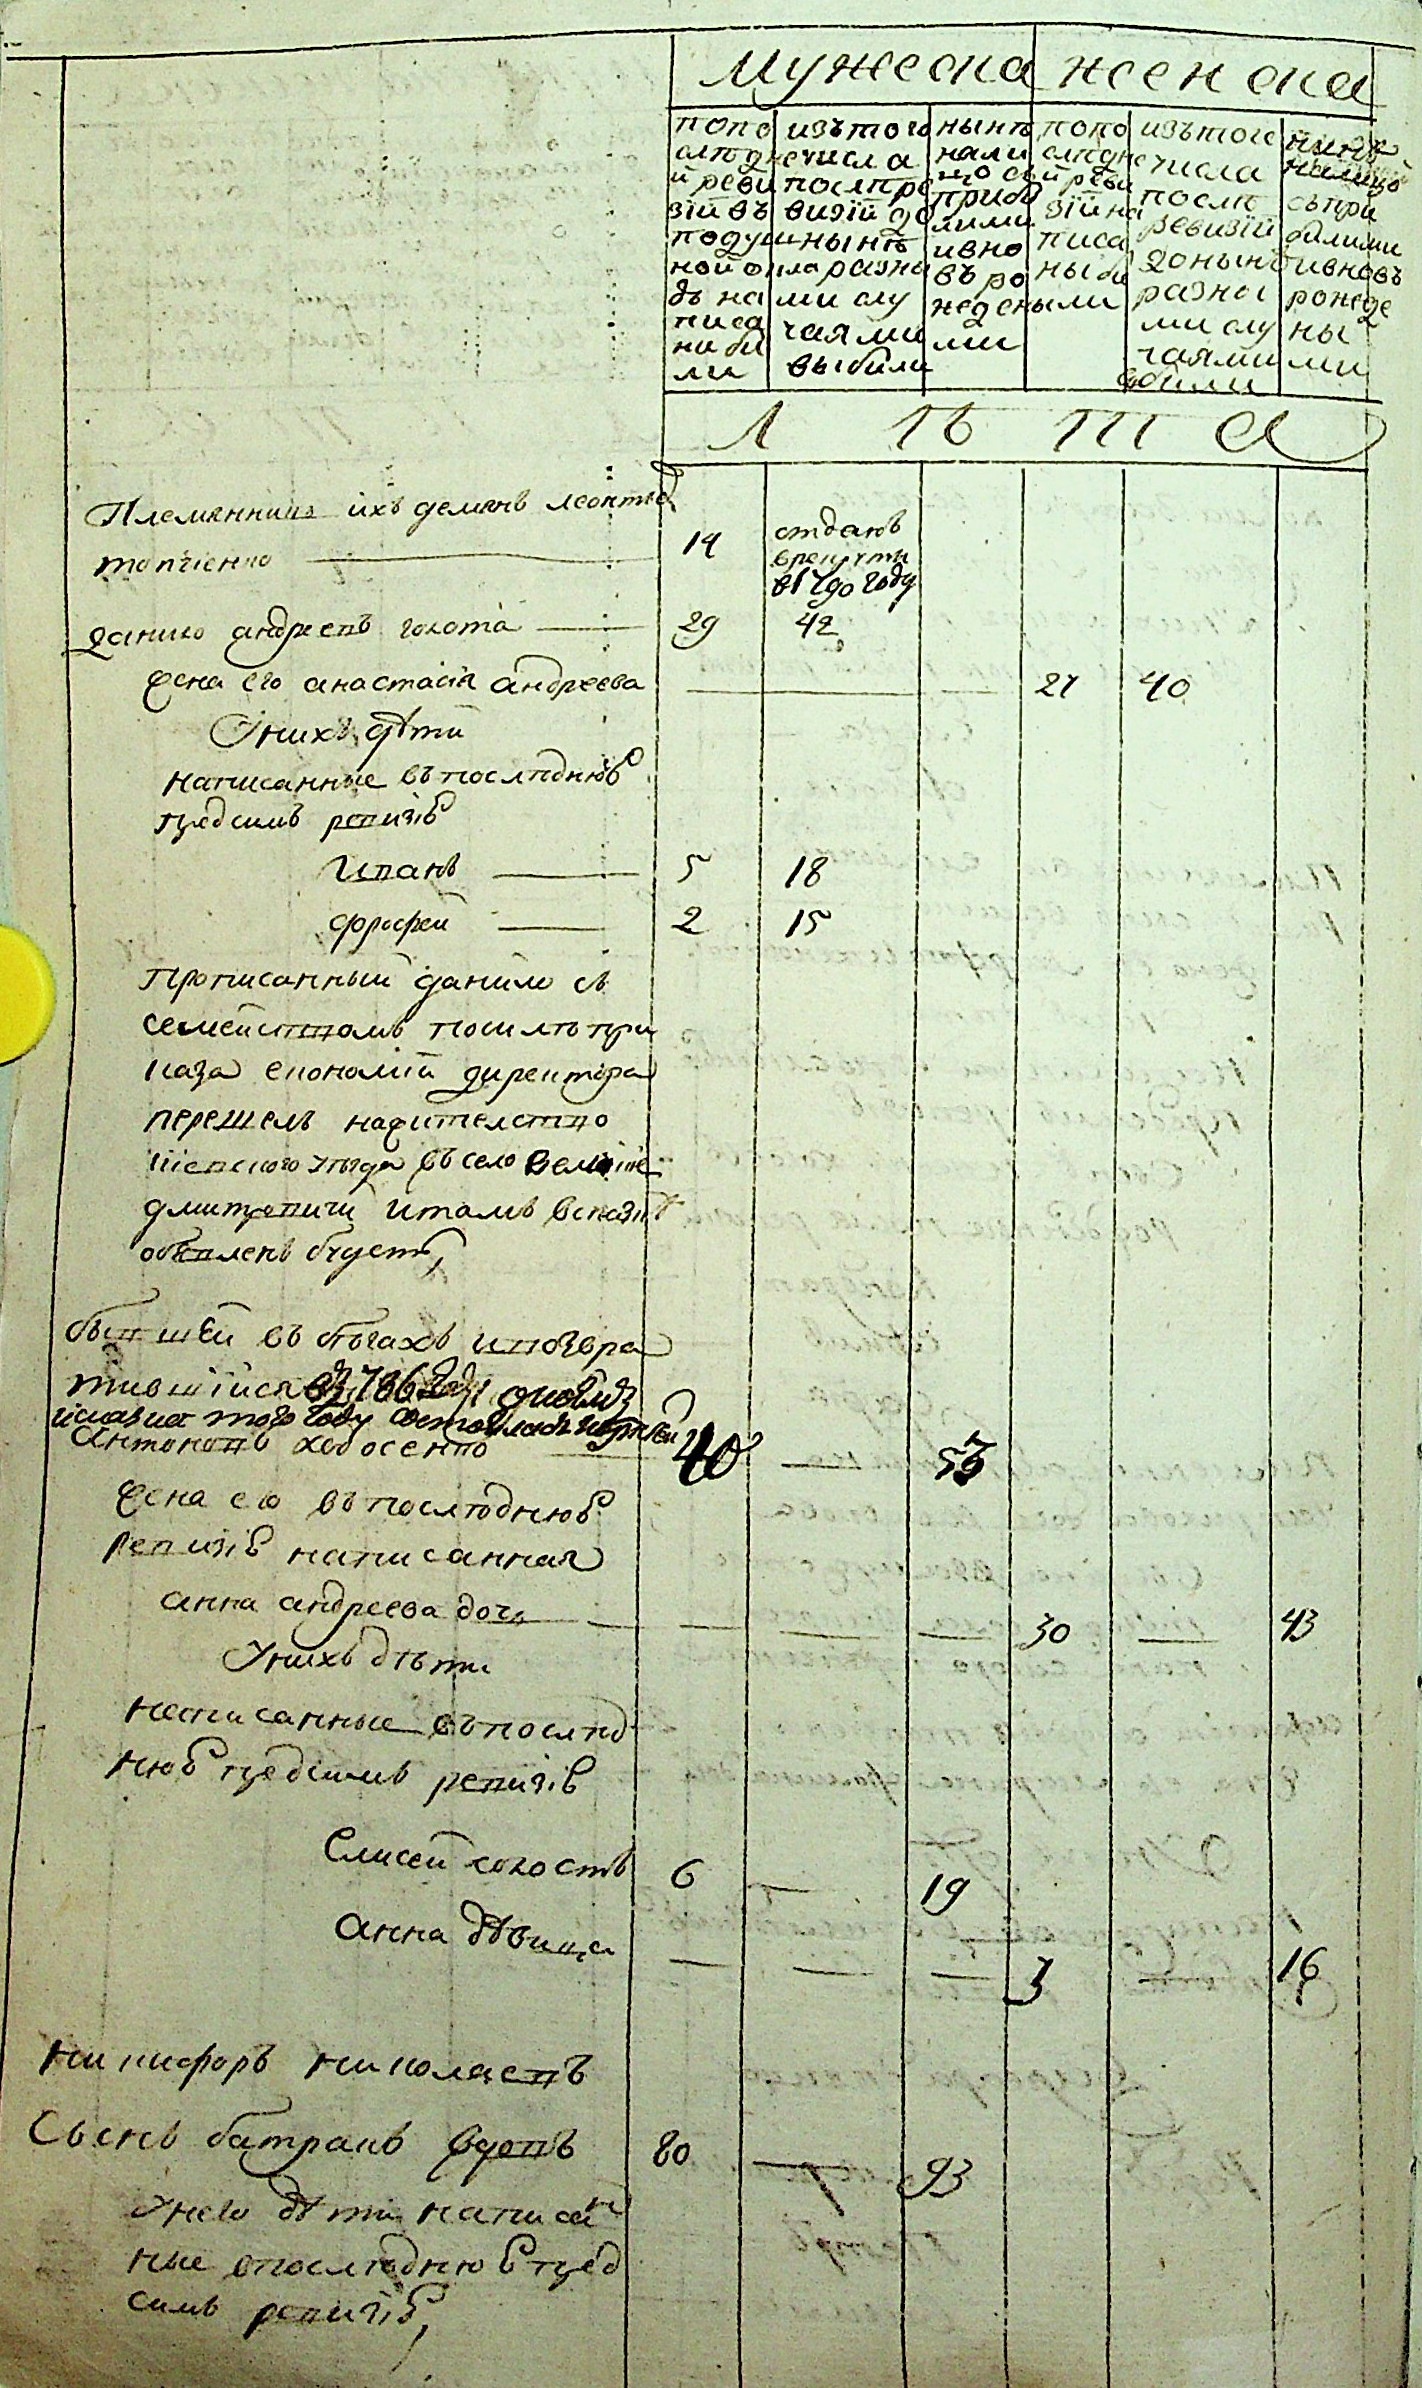 мужеска женска
попо
слѣдне
й реви
зіи въ
подуш
ной окла
дѣ на
писа
ны би
ли
изътого
числа
послѣ ре
визіи до
нынѣ
разны
ми слу
чаями
выбили
нынѣ
нали
цо съ
прибы
лими
ивно
въ ро
ждеными
попо
слѣдне
й реви
зіи на
писа
ны би
ли
изътого
числа
послѣ
ревизіи
донынѣ
разны
ми слу
чаями
вибили
нинѣ
налицо
съпри
билими
ивновъ
рожде
ны
ми
Л ѣ т а
Племянникъ ихъ демянъ леонтиевъ
14
отданъ
врекруты
в1790 году
данило андреевъ голота 29 42
жена его анастасія андреева 27 40
Унихъ дѣти
написанные въ послѣднюю
предсимъ ревизію
Иванъ 5 18
дорофей 2 15
прописанный данило съ
семействомъ посилѣ при
каза економіи директора
перешелъ нажителство
кіевского уезда въ село великие
дмитровичи итамъ всказкѣ
объявленъ будетъ,
бывшей въ бѣгахъ ивозвра
тившійся в1786 году
антоновъ ходосенко 40 53
жена его въ послѣднюю
ревизію написанная
анна андреева дочь 30 43
Унихъ дѣти
написанные въпослѣд
нюю предсимъ ревизію
Елисей холостъ 6 19
анна дѣвица 3 16
Никифоръ Николаевъ
сынъ батракъ вдовъ 80 93
Унего дѣти написан
ные впослѣднюю пред
симъ ревизію,